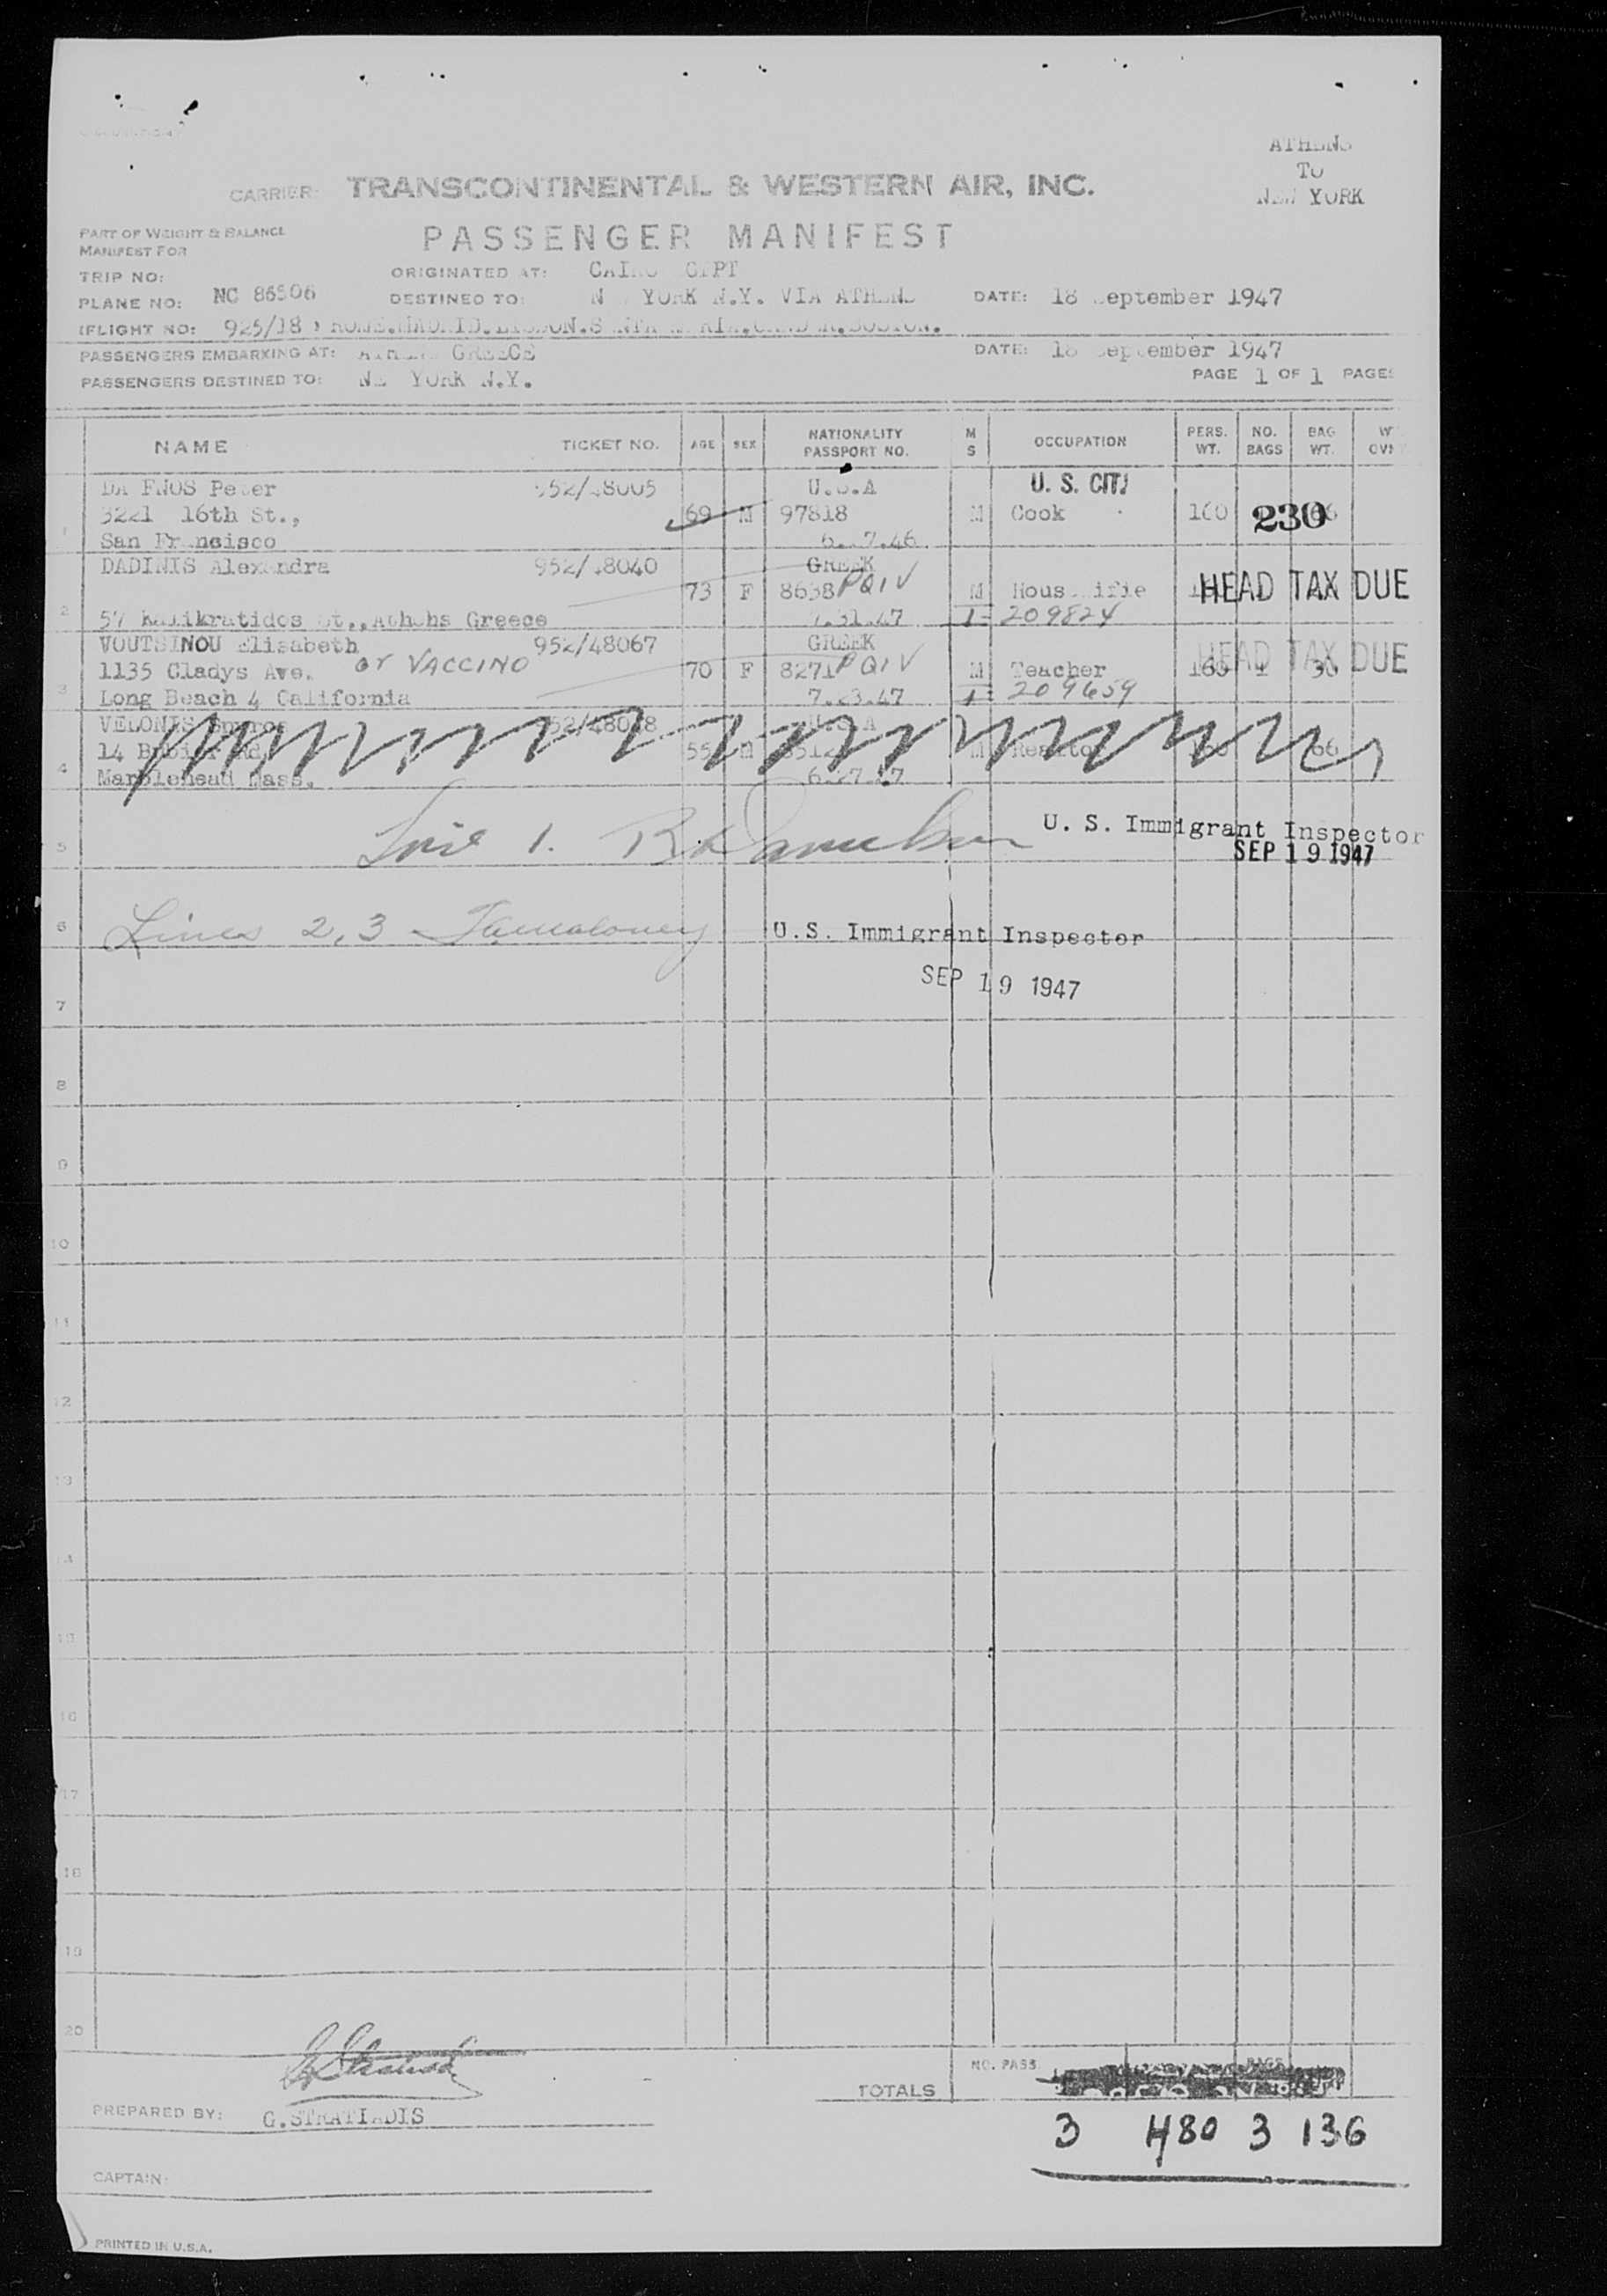 ATHENS
To
NEW YORK
CARRIER: TRANSCONTINENTAL & WESTERN AIR, INC.
PART OF WEIGHT & BALANCE
MANIFEST FOR
PASSENGER MANIFEST
TRIP NO:
ORIGINATED AT: CAIRO
PLANE NO: NC 86506
DESTINED TO: NEW YORK N.Y. VIA ATHENS
DATE: 18 September 1947
(FLIGHT NO: 925/18) ROME.MADRID.LISBON. BOSTON.
PASSENGERS EMBARKING AT: ATHENS GREECE
DATE: 18 September 1947
PASSENGERS DESTINED TO: NEW YORK N.Y.
PAGE 1 OF 1 PAGES
NAME TICKET NO. AGE SEX NATIONALITY PASSPORT NO. M S OCCUPATION PERS. WT. NO. BAGS BAG WT.
Peter 952/48005 U.S.A U. S. CIT.
1 3221 16th St., 69 M 97818 M Cook 160 230
San Francisco
DADINIS Alexandra 952/48040 GREEK
2 73 F 8638 PQIV M HEAD TAX DUE
57 Kalikratidos St., Greece 7.31.47 I- 209824
VOUTSINOU Elisabeth 952/48067 GREEK
or VACCINO
3 1135 Gladys Ave. 70 F 8271 PQIV M Teacher 160 1 30 HEAD TAX DUE
Long Beach 4 California 7.23.47 I- 209659
VELONIS
4 14 55 M M 66
Marblehead Mass.
5 Line 1. U. S. Immigrant Inspector
SEP 19 1947
6 Lines 2,3 U.S. Immigrant Inspector
SEP 19 1947
7
8
9
10
11
12
13
14
15
16
17
18
19
20
NO. PASS BAGS
TOTALS
PREPARED BY: G.STRATIADIS
3 480 3 136
CAPTAIN:
PRINTED IN U.S.A.